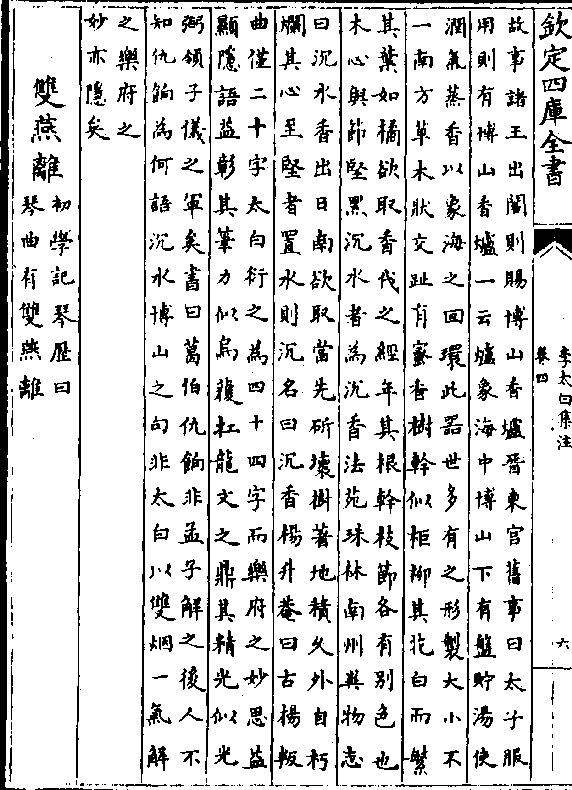 欽定四庫全書
李太白集注
卷四
六
故事諸王出閣則賜博山香爐晉東宮舊事曰太子服
用則有博山香爐一云爐象海中博山下有盤貯湯使
潤氣蒸香以象海之回環此器世多有之形製大小不
一南方草木狀交趾有蜜香樹幹似柜柳其花白而繁
其葉如橘欲取香伐之經年其根幹枝節各有別色也
木心與節堅黑沉水者為沉香法苑珠林南州異物志
曰沉水香出日南欲取當先斫壞樹著地積久外自朽
爛其心至堅者置水則沉名曰沉香楊升菴曰古楊叛
曲僅二十字太白衍之為四十四字而樂府之妙思益
顯隱語益彰其筆力似烏獲扛龍文之鼎其精光似光
弼領子儀之軍矣書曰葛伯仇餉非孟子解之後人不
知仇餉為何語沉水博山之句非太白以雙烟一氣解
之樂府之
妙亦隱矣
雙燕離
初學記琴歴曰
琴曲有雙燕離